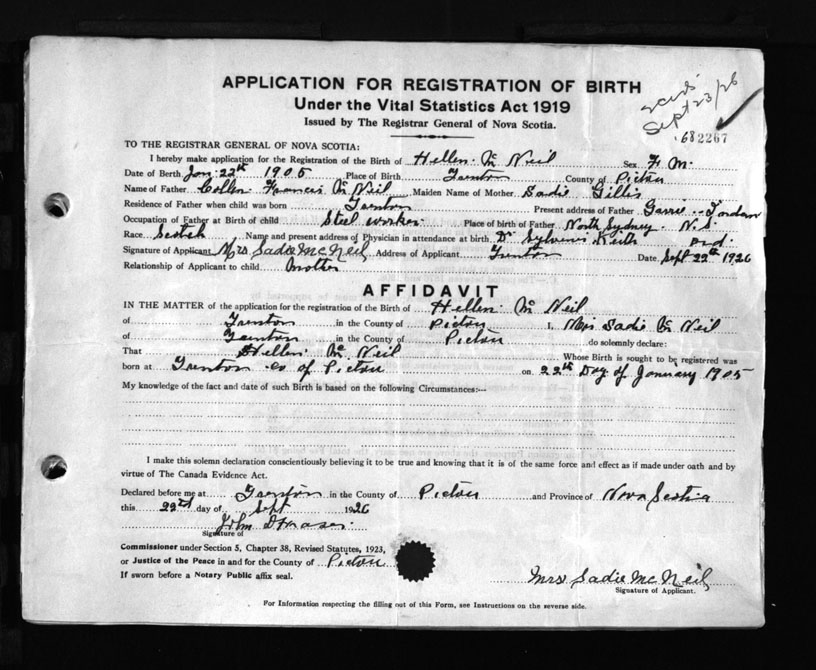 APPLICATION FOR REGISTRATION OF BIRTH
Under the Vital Statistics Act 1919
Issued by The Registrar General of Nova Scotia.
Sept 23/26
682267
TO THE REGISTRAR GENERAL OF NOVA SCOTIA:
I hereby make application for the Registration of the Birth of Hellen Mc Neil Sex F. M.
Date of Birth Jan 22th 1905 Place of Birth Trenton County of Pictou
Name of Father Collin Francis Mc Neil Maiden Name of Mother Sadie Gillis
Residence of Father when child was born Trenton Present address of Father
Occupation of Father at Birth of child Steel worker Place of birth of Father North Sydney. N.S.
Race Scotch Name and present address of Physician in attendance at birth Dr Keith
Signature of Applicant Mrs Sadie McNeil Address of Applicant Trenton Date Sept 22th 1926
Relationship of Applicant to child Mother
AFFIDAVIT
IN THE MATTER of the application for the registration of the Birth of Hellen Mc Neil
of Trenton in the County of Pictou I, Mrs Sadie Mc Neil
of Trenton in the County of Pictou do solemnly declare:
That Hellen Mc Neil Whose Birth is sought to be registered was
born at Trenton co of Pictou on 22th Day of January 1905
My knowledge of the fact and date of such Birth is based on the following Circumstances:—
I make this solemn declaration conscientiously believing it to be true and knowing that it is of the same force and effect as if made under oath and by
virtue of The Canada Evidence Act.
Declared before me at Trenton in the County of Pictou and Province of Nova Scotia
this 22nd day of Sept 1926
John Fraser
Signature of
Commissioner under Section 5, Chapter 38, Revised Statutes, 1923,
or Justice of the Peace in and for the County of Pictou
If sworn before a Notary Public affix seal.
Mrs Sadie McNeil
Signature of Applicant.
For Information respecting the filling out of this Form, see Instructions on the reverse side.